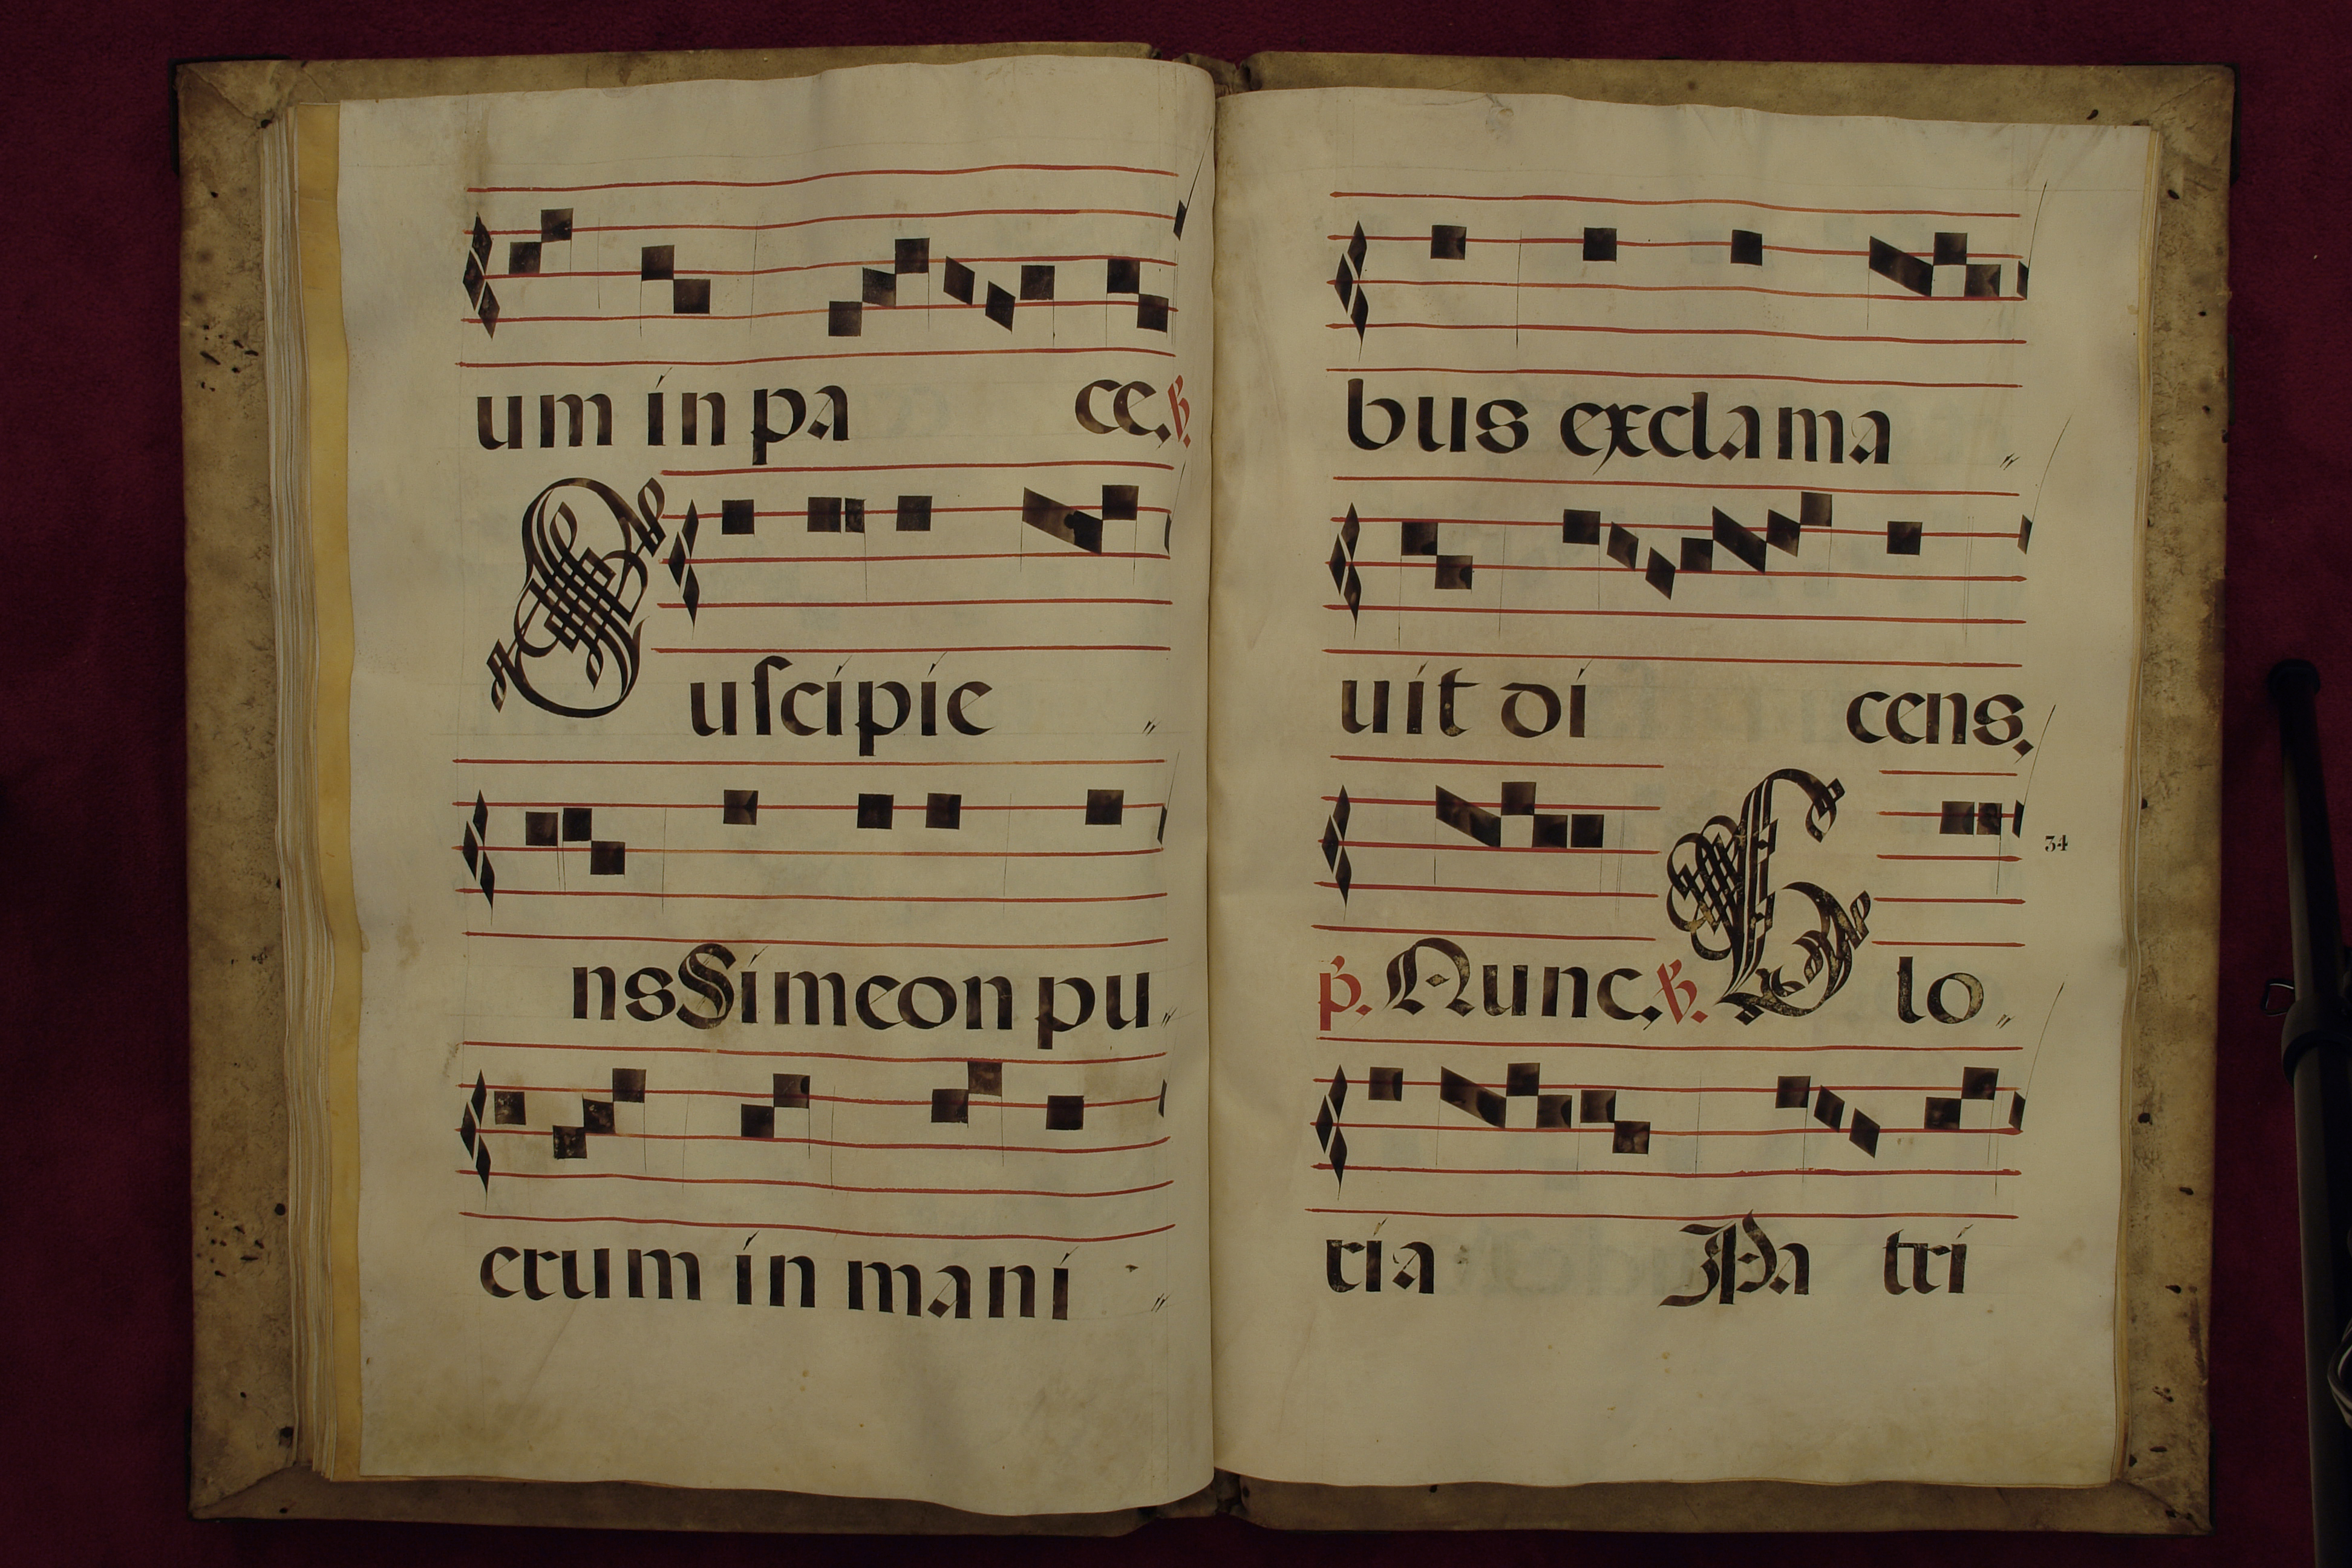 um in pa ce. ℣.
Suſcipie
ns Simeon pu
erum in mani
bus exclama
uit di cens.
34
p̃. Nunc. ℣. Glo
ria Pa tri